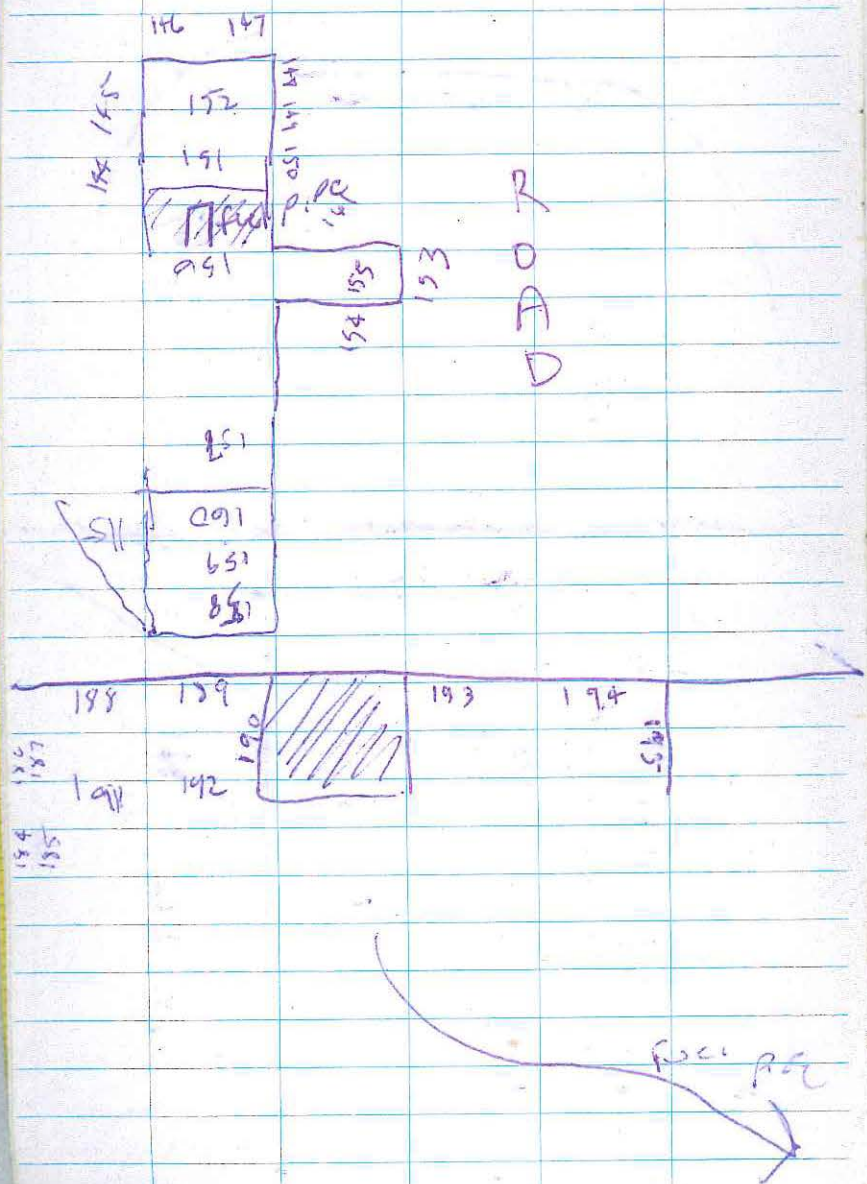 146 147
144 145
152
148 149 150
151
PIPE
156
155
153
154
ROAD
157
160
115
159
158
188 189
193 194
190
195
186
187
191 192
184
185